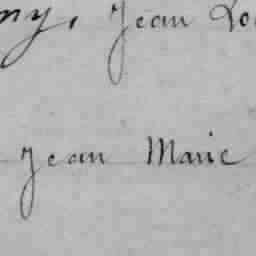 ny, Jean Lo
Jean Marie